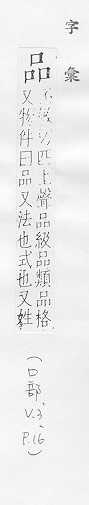 字彙
品
切匹上聲品級品類品格
又物件曰品又法也式也又姓
(口部、V.3、P.16)